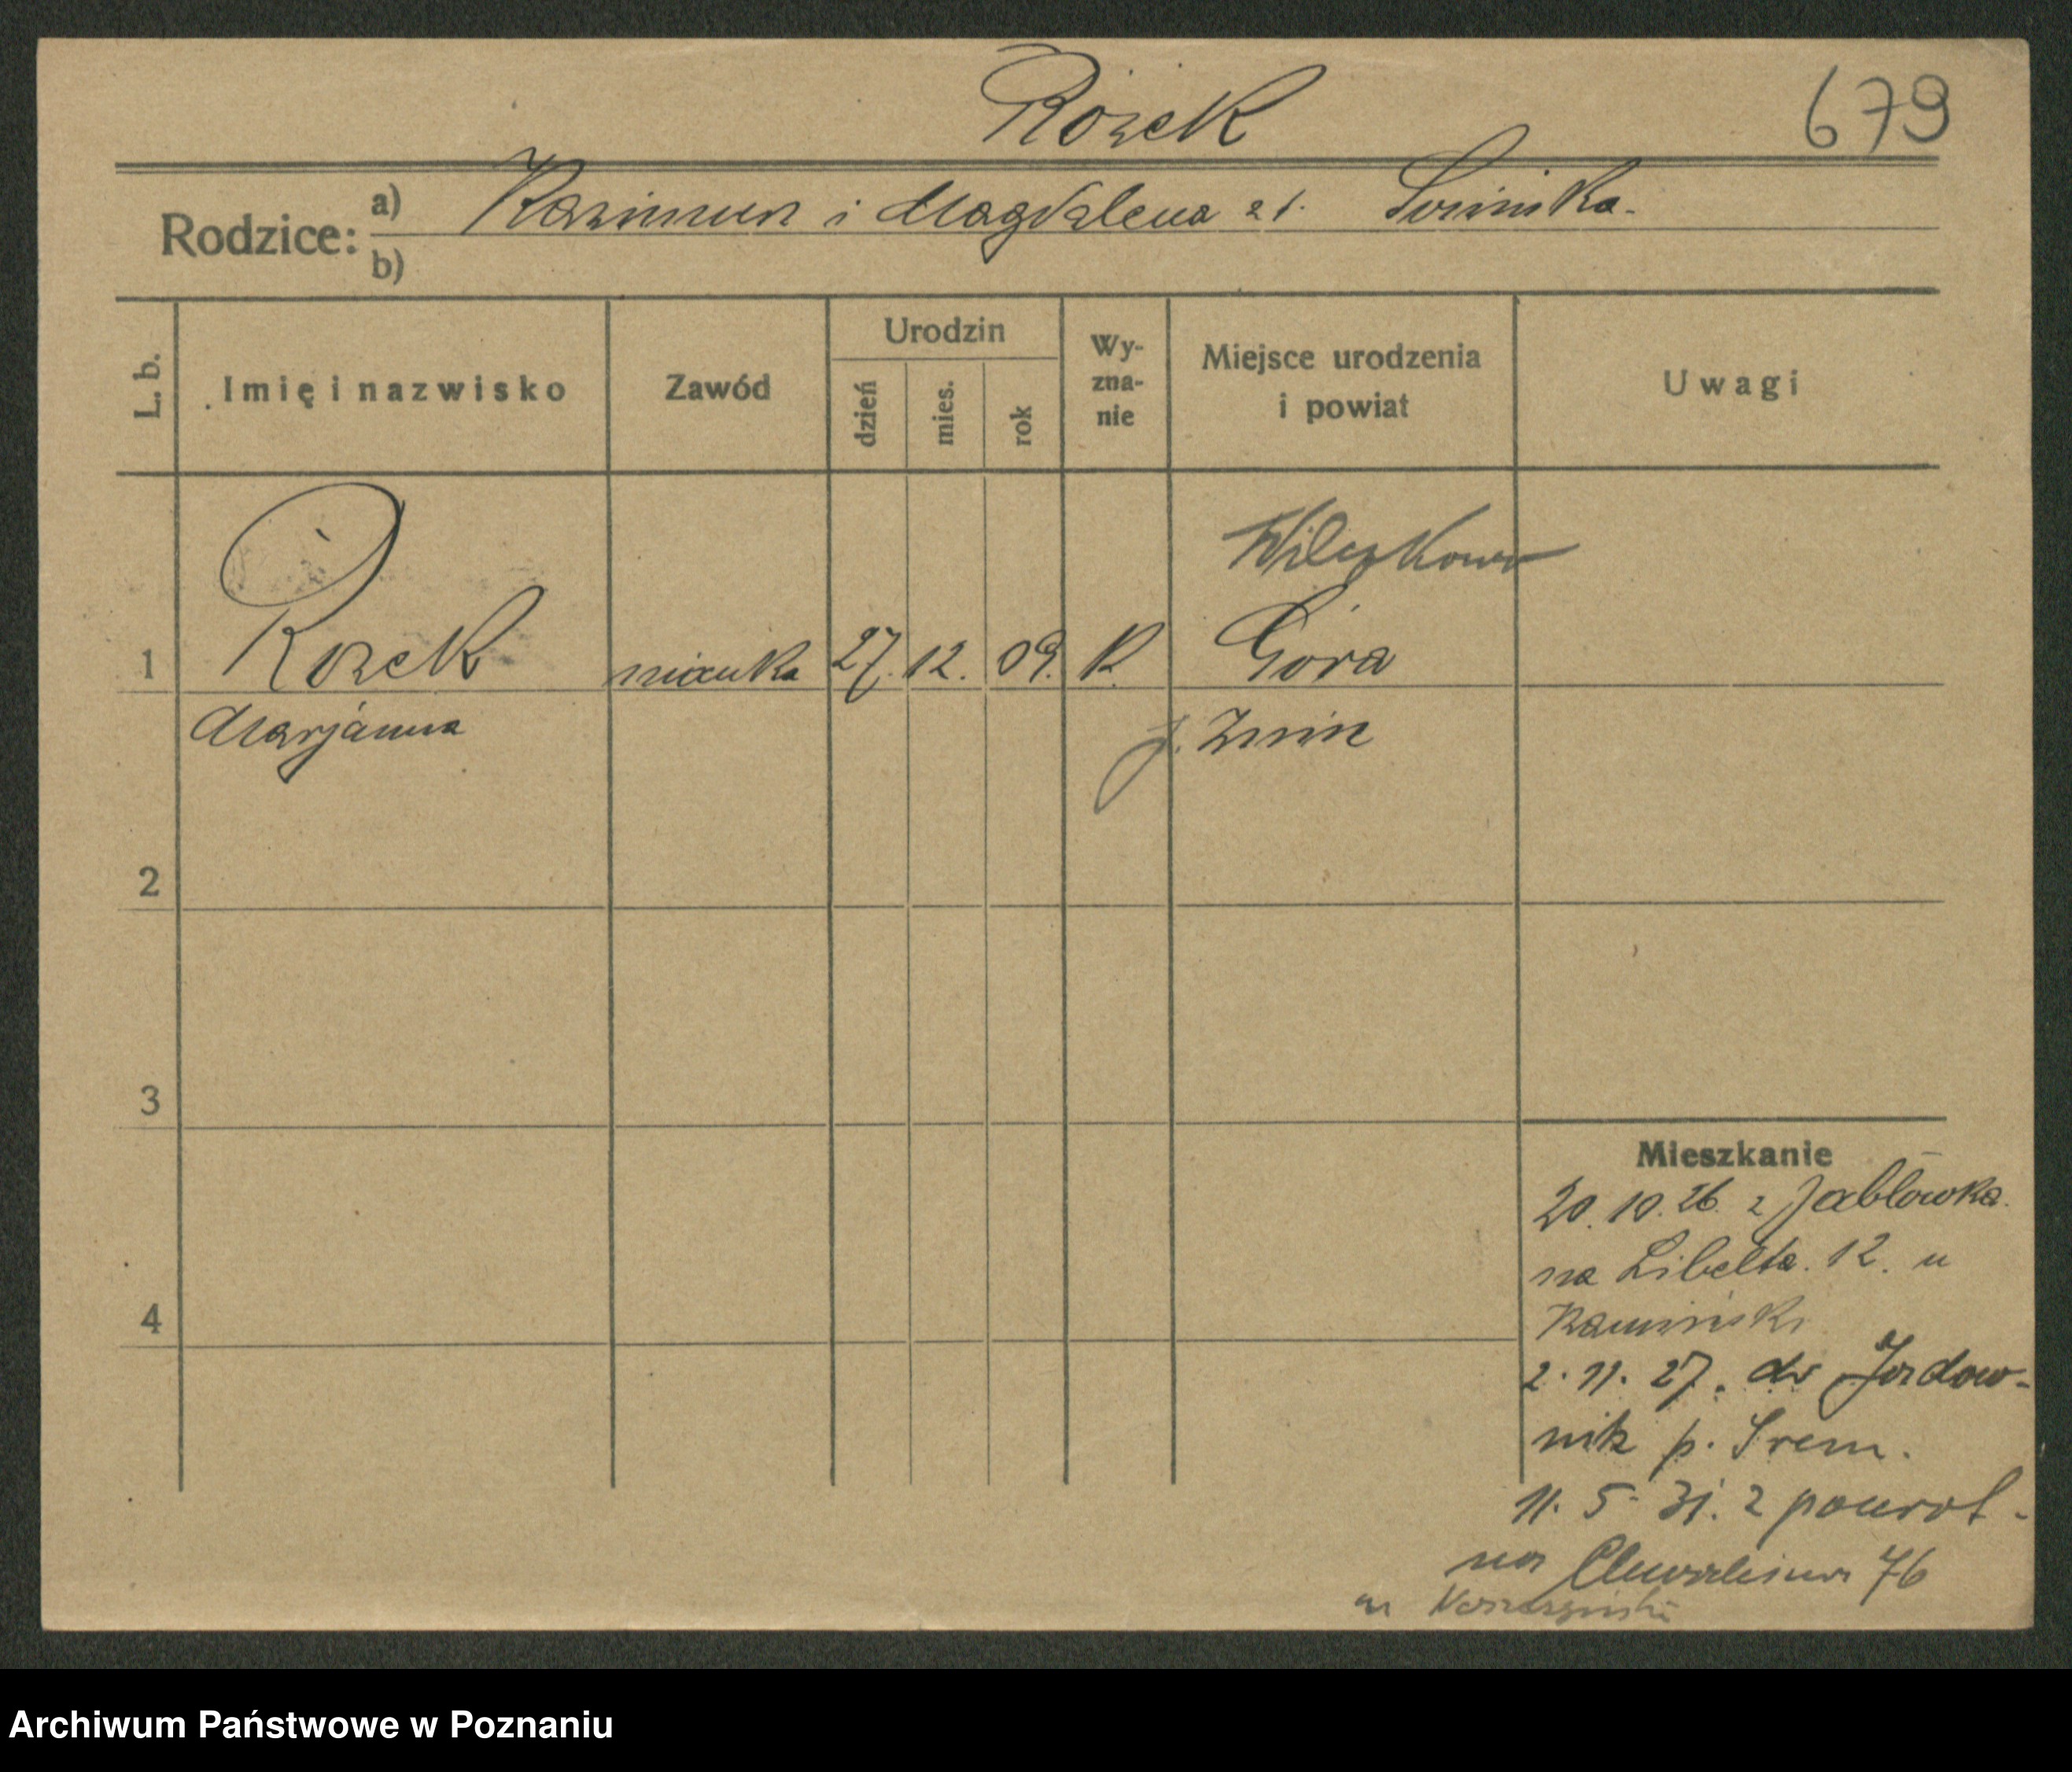 Rożek
679
Rodzice: a) Kazimierz i Magdalena z d.
b)
L. b.
Imię i nazwisko
Zawód
Urodzin
dzień
mies.
rok
Wy-
zna-
nie
Miejsce urodzenia
i powiat
Uwagi
Wilczkowo
1 Rożek niańka 27. 12. 09. K. Góra
Marjanna p. Żnin
2
3
4
Mieszkanie
20. 10. 26. z Jabłówka.
na Libelta. 12. u
Kamiński
2. 11. 27. do
nik p. Śrem.
11. 5. 31. z powrot-
na 76
u
Archiwum Państwowe w Poznaniu